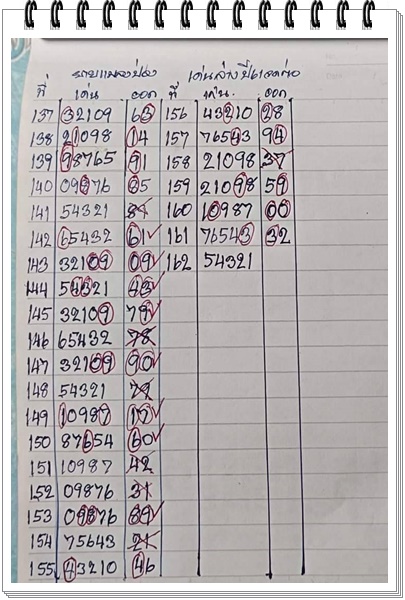 เด่นล่าง
ที่ เด่น ออก ที่ เด่น. ออก
137 32109 63 156 43210 28
138 21098 14 157 76543 94
139 98765 91 158 21098 37
140 09876 85 159 21098 59
141 54321 84 160 10987 00
142 65432 61 161 76543 32
143 32109 09 162 54321
144 54321 43
145 32109 79
146 65432 78
147 32109 90
148 54321 79
149 10987 17
150 87654 60
151 10987 42
152 09876 31
153 09876 89
154 75643 21
155 43210 46